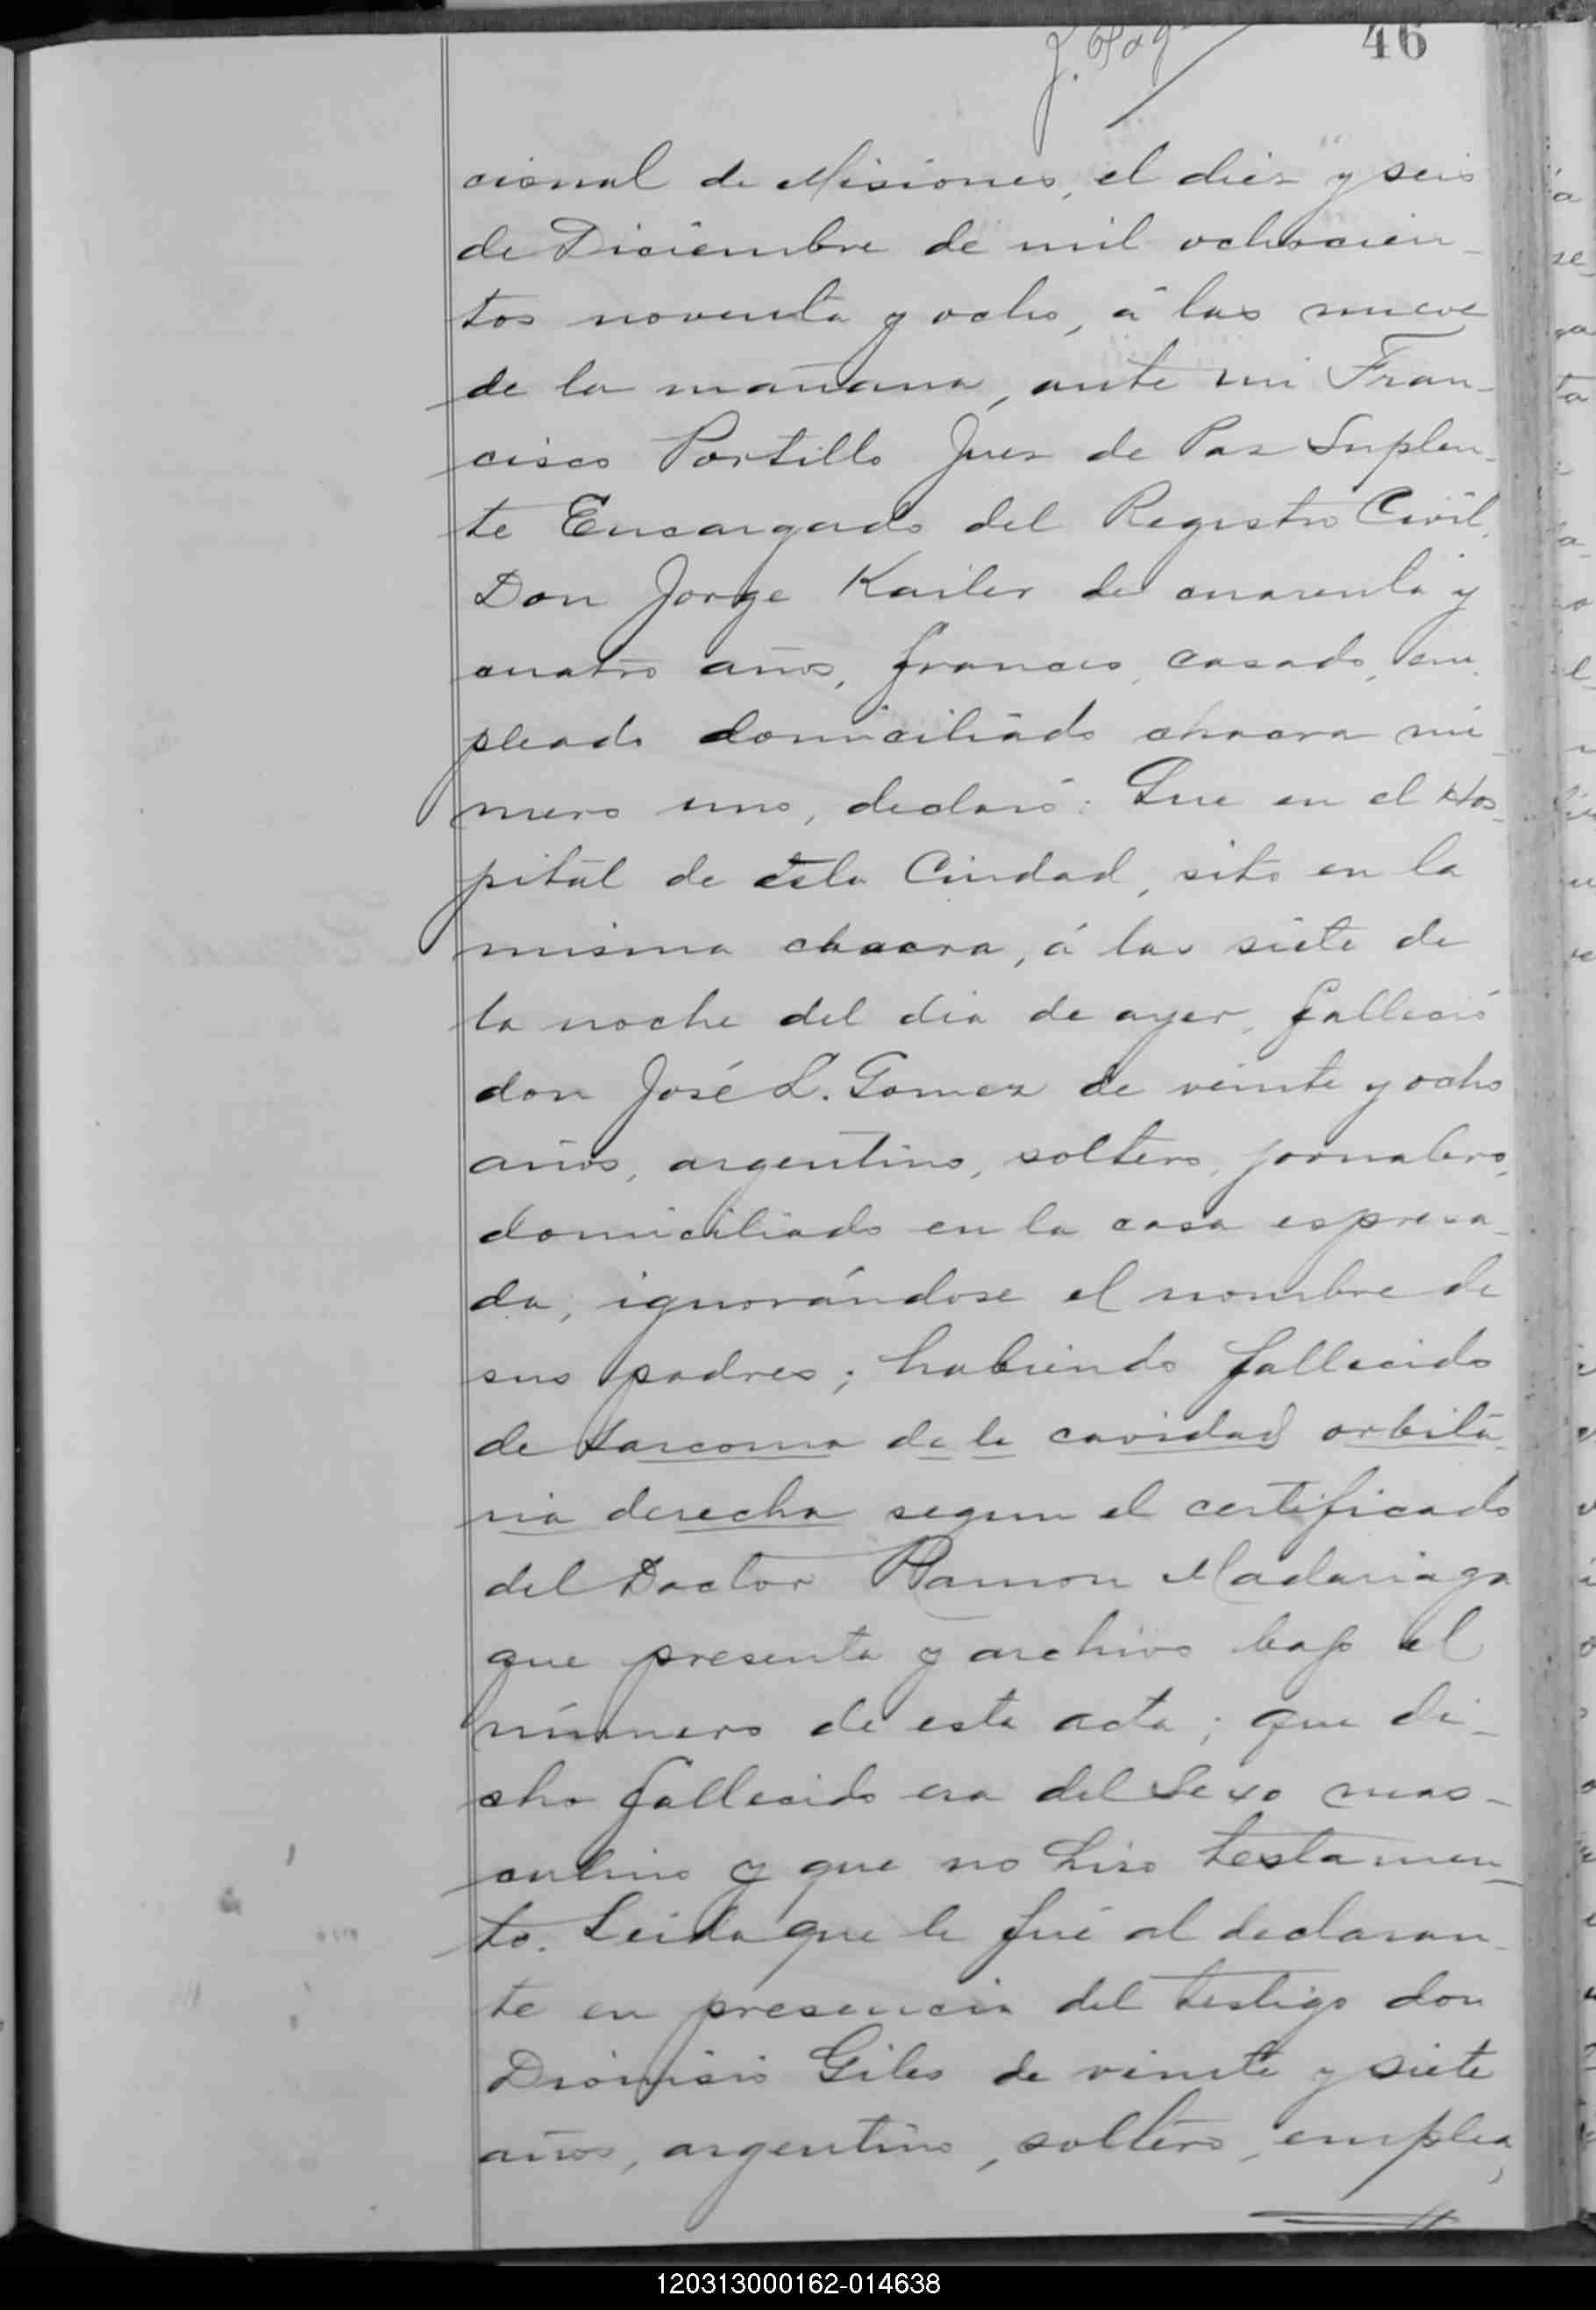 46
cional de Misiones, el diez y seis
de Diciembre de mil ochocien-
tos noventa y ocho, á las nueve
de la mañana, ante mi Fran-
cisco Portillo Juez de Paz Suplen-
te Encargado del Registro Civil,
Don Jorge Kailer de cuarenta y
cuatro años, frances, casado, em-
pleado domiciliado chacra nú-
mero uno, declaró: Que en el Hos-
pital de esta Ciudad, sito en la
misma chacra, á las siete de
la noche del dia de ayer, falleció
don José L. Gomez de veinte y ocho
años, argentino, soltero, jornalero,
domiciliado en la casa espresa-
da, ignorándose el nombre de
sus padres; habiendo fallecido
de Sarcoma de la cavidad orbita-
ria derecha segun el certificado
del Doctor Ramon Madariaga
que presenta y archivo bajo el
número de esta acta; que di-
cho fallecido era del Sexo mas-
culino y que no hizo testamen-
to. Leida que le fué al declaran-
te en presencia del testigo don
Dionisio Giles de veinte y siete
años, argentino, soltero, emplea,
120313000162-014638